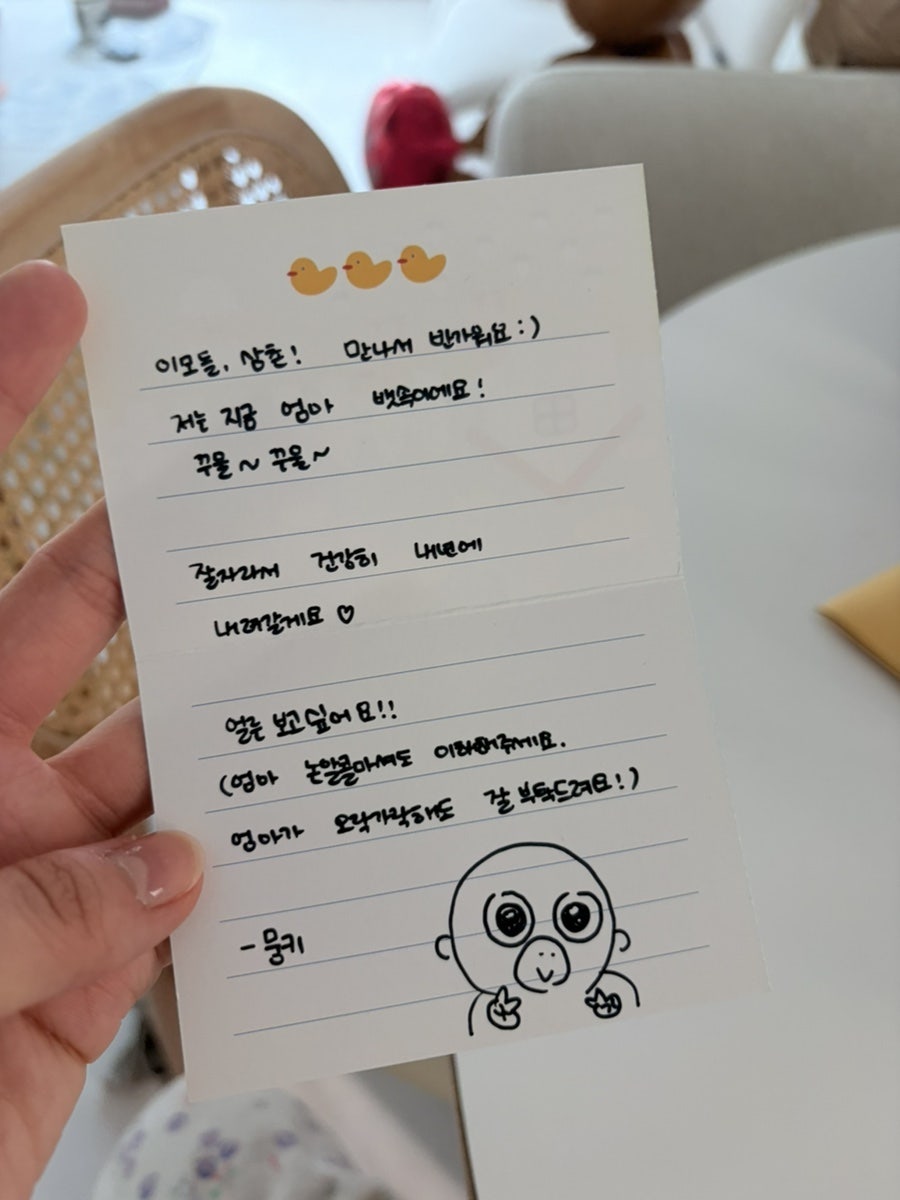 이모들, 삼촌! 만나서 반가워요 :)
저는 지금 엄마 뱃속이에요!
꾸물~ 꾸물~
잘자라서 건강히 내년에
내려갈게요 ♡
얼른 보고싶어요!!
(엄마 논알콜마셔도 이해해주세요.
엄마가 오락가락해도 잘 부탁드려요!)
- 뭉키